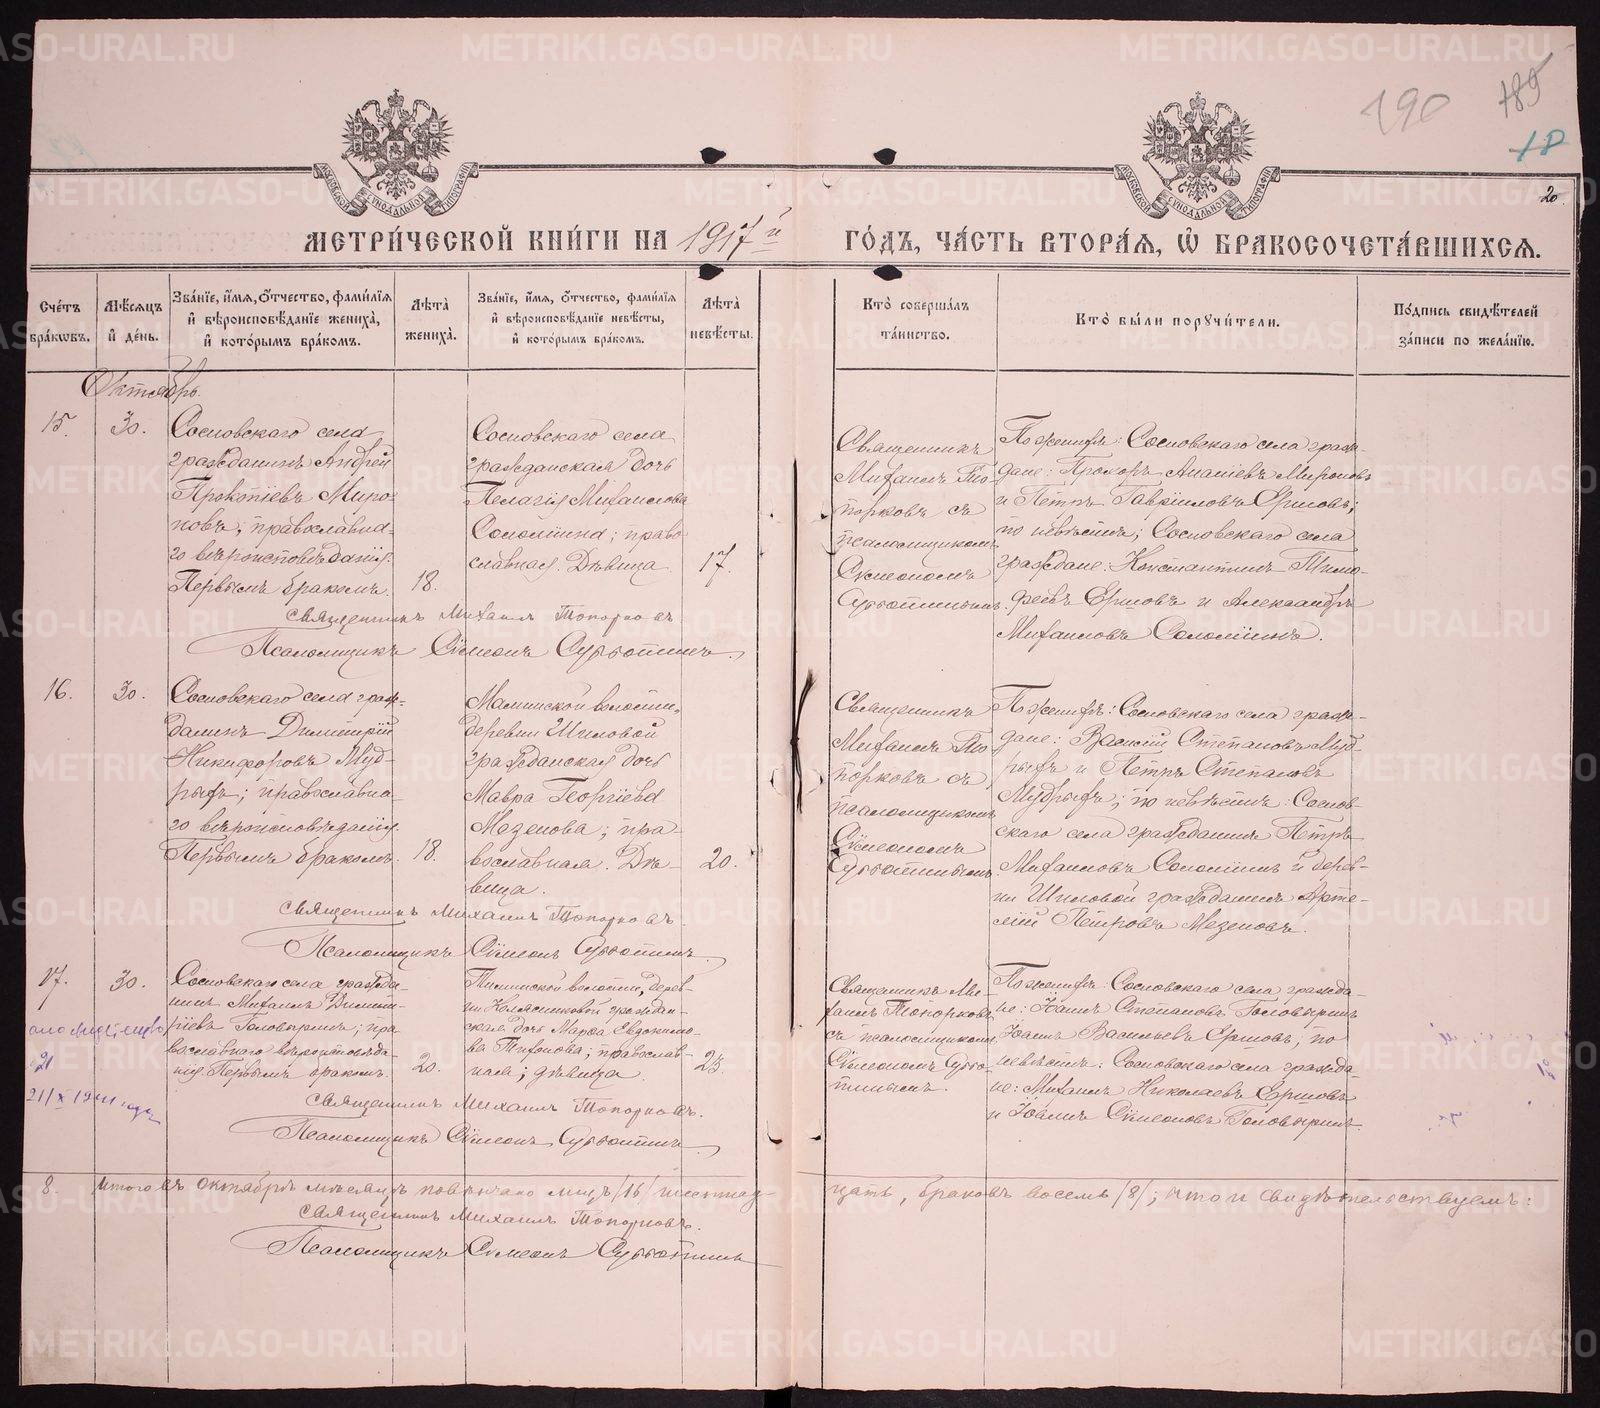 190
189
18
20.
МОСКОВСКОЙ СѴНОДАЛЬНОЙ ТИПОГРАФІИ
МОСКОВСКОЙ СѴНОДАЛЬНОЙ ТИПОГРАФІИ
МЕТРИ́ЧЕСКОЙ КНИ́ГИ НА 1917й ГО́ДЪ, ЧА́СТЬ ВТОРА́Я, Ѡ҆ БРАКОСОЧЕТА́ВШИХСЯ.
Сче́тъ
бра́ковъ.
Мѣ́сяцъ
и҆ де́нь.
Зва́нїе, и҆́мя, ѻ҆́тчество, фами́лїя
и҆ вѣроисповѣ́данїе жениха̀,
и҆ кото́рымъ бра́комъ.
Лѣта̀
жениха̀.
Зва́нїе, и҆́мя, ѻ҆́тчество, фами́лїя
и҆ вѣроисповѣ́данїе невѣ́сты,
и҆ кото́рымъ бра́комъ.
Лѣта̀
невѣ́сты.
Кто̀ соверша́лъ
та́инство.
Кто̀ бы́ли порꙋчи́тели.
По́дпись свидѣ́телей
за́писи по жела́нїю.
Октябрь.
15.
30.
Сосновскаго села
гражданинъ Андрей
Прокопіевъ Миро-
новъ, православна-
го вѣроисповѣданія.
Первымъ бракомъ.
18.
Сосновскаго села
гражданская дочь
Пелагія Михаилова
Соломина; право-
славная. Дѣвица
17.
Священникъ
Михаилъ То-
порковъ съ
псаломщикомъ
Сѵмеономъ
Субботинымъ.
По женихѣ: Сосновскаго села граж-
дане: Прохоръ Ананіевъ Мироновъ
и Петръ Гавріиловъ Ершовъ;
по невѣстѣ; Сосновскаго села
граждане: Константинъ Тимо-
феевъ Ершовъ и Александръ
Михаиловъ Соломинъ.
Священникъ Михаилъ Топорковъ
Псаломщикъ Сѵмеонъ Субботинъ.
16.
30.
Сосновскаго села граж-
данинъ Димитрій
Никифоровъ Муд-
рыхъ; православна-
го вѣроисповѣданія.
Первымъ бракомъ.
18.
Маминской волости,
деревни Шиловой
гражданская дочь
Мавра Георгіева
Мезенова; пра-
вославная. Дѣ-
вица.
20.
Священникъ
Михаилъ То-
порковъ съ
псаломщикомъ
Сѵмеономъ
Субботинымъ
По женихѣ: Сосновскаго села граж-
дане: Василій Степановъ Муд-
рыхъ и Петръ Степановъ
Мудрыхъ; по невѣстѣ: Соснов-
скаго села гражданинъ Петръ
Михаиловъ Соломинъ и дерев-
ни Шиловой гражданинъ Арте-
мій Петровъ Мезеновъ.
Священникъ Михаилъ Топорковъ.
Псаломщикъ Сѵмеонъ Субботинъ.
17.
30.
Сосновскаго села гражда-
нинъ Михаилъ Димит-
ріевъ Головыринъ; пра-
вославнаго вѣроисповѣда-
нія. Первымъ бракомъ.
20.
дерев-
граждан-
ская дочь Марѳа Евдокимо-
ва Тихонова; православ-
ная; дѣвица.
23.
Священникъ Ми-
хаилъ Топорковъ
съ псаломщикомъ
Сѵмеономъ Суббо-
тинымъ.
По женихѣ: Сосновскаго села гражда-
не: Іоаннъ Степановъ Головыринъ
Іоаннъ Васильевъ Ершовъ, по
невѣстѣ: Сосновскаго села гражда-
не: Михаилъ Николаевъ Ершовъ
и Іоаннъ Сѵмеоновъ Головыринъ.
21/X 1941 года
Священникъ Михаилъ Топорковъ.
Псаломщикъ Сѵмеонъ Субботинъ.
8.
Итого въ октябрѣ мѣсяцѣ повѣнчано лицъ /16/ шестнад-
цать, браковъ восемь /8/; что и свидѣтельствуемъ:
Священникъ Михаилъ Топорковъ.
Псаломщикъ Сѵмеонъ Субботинъ
METRIKI.GASO-URAL.RU